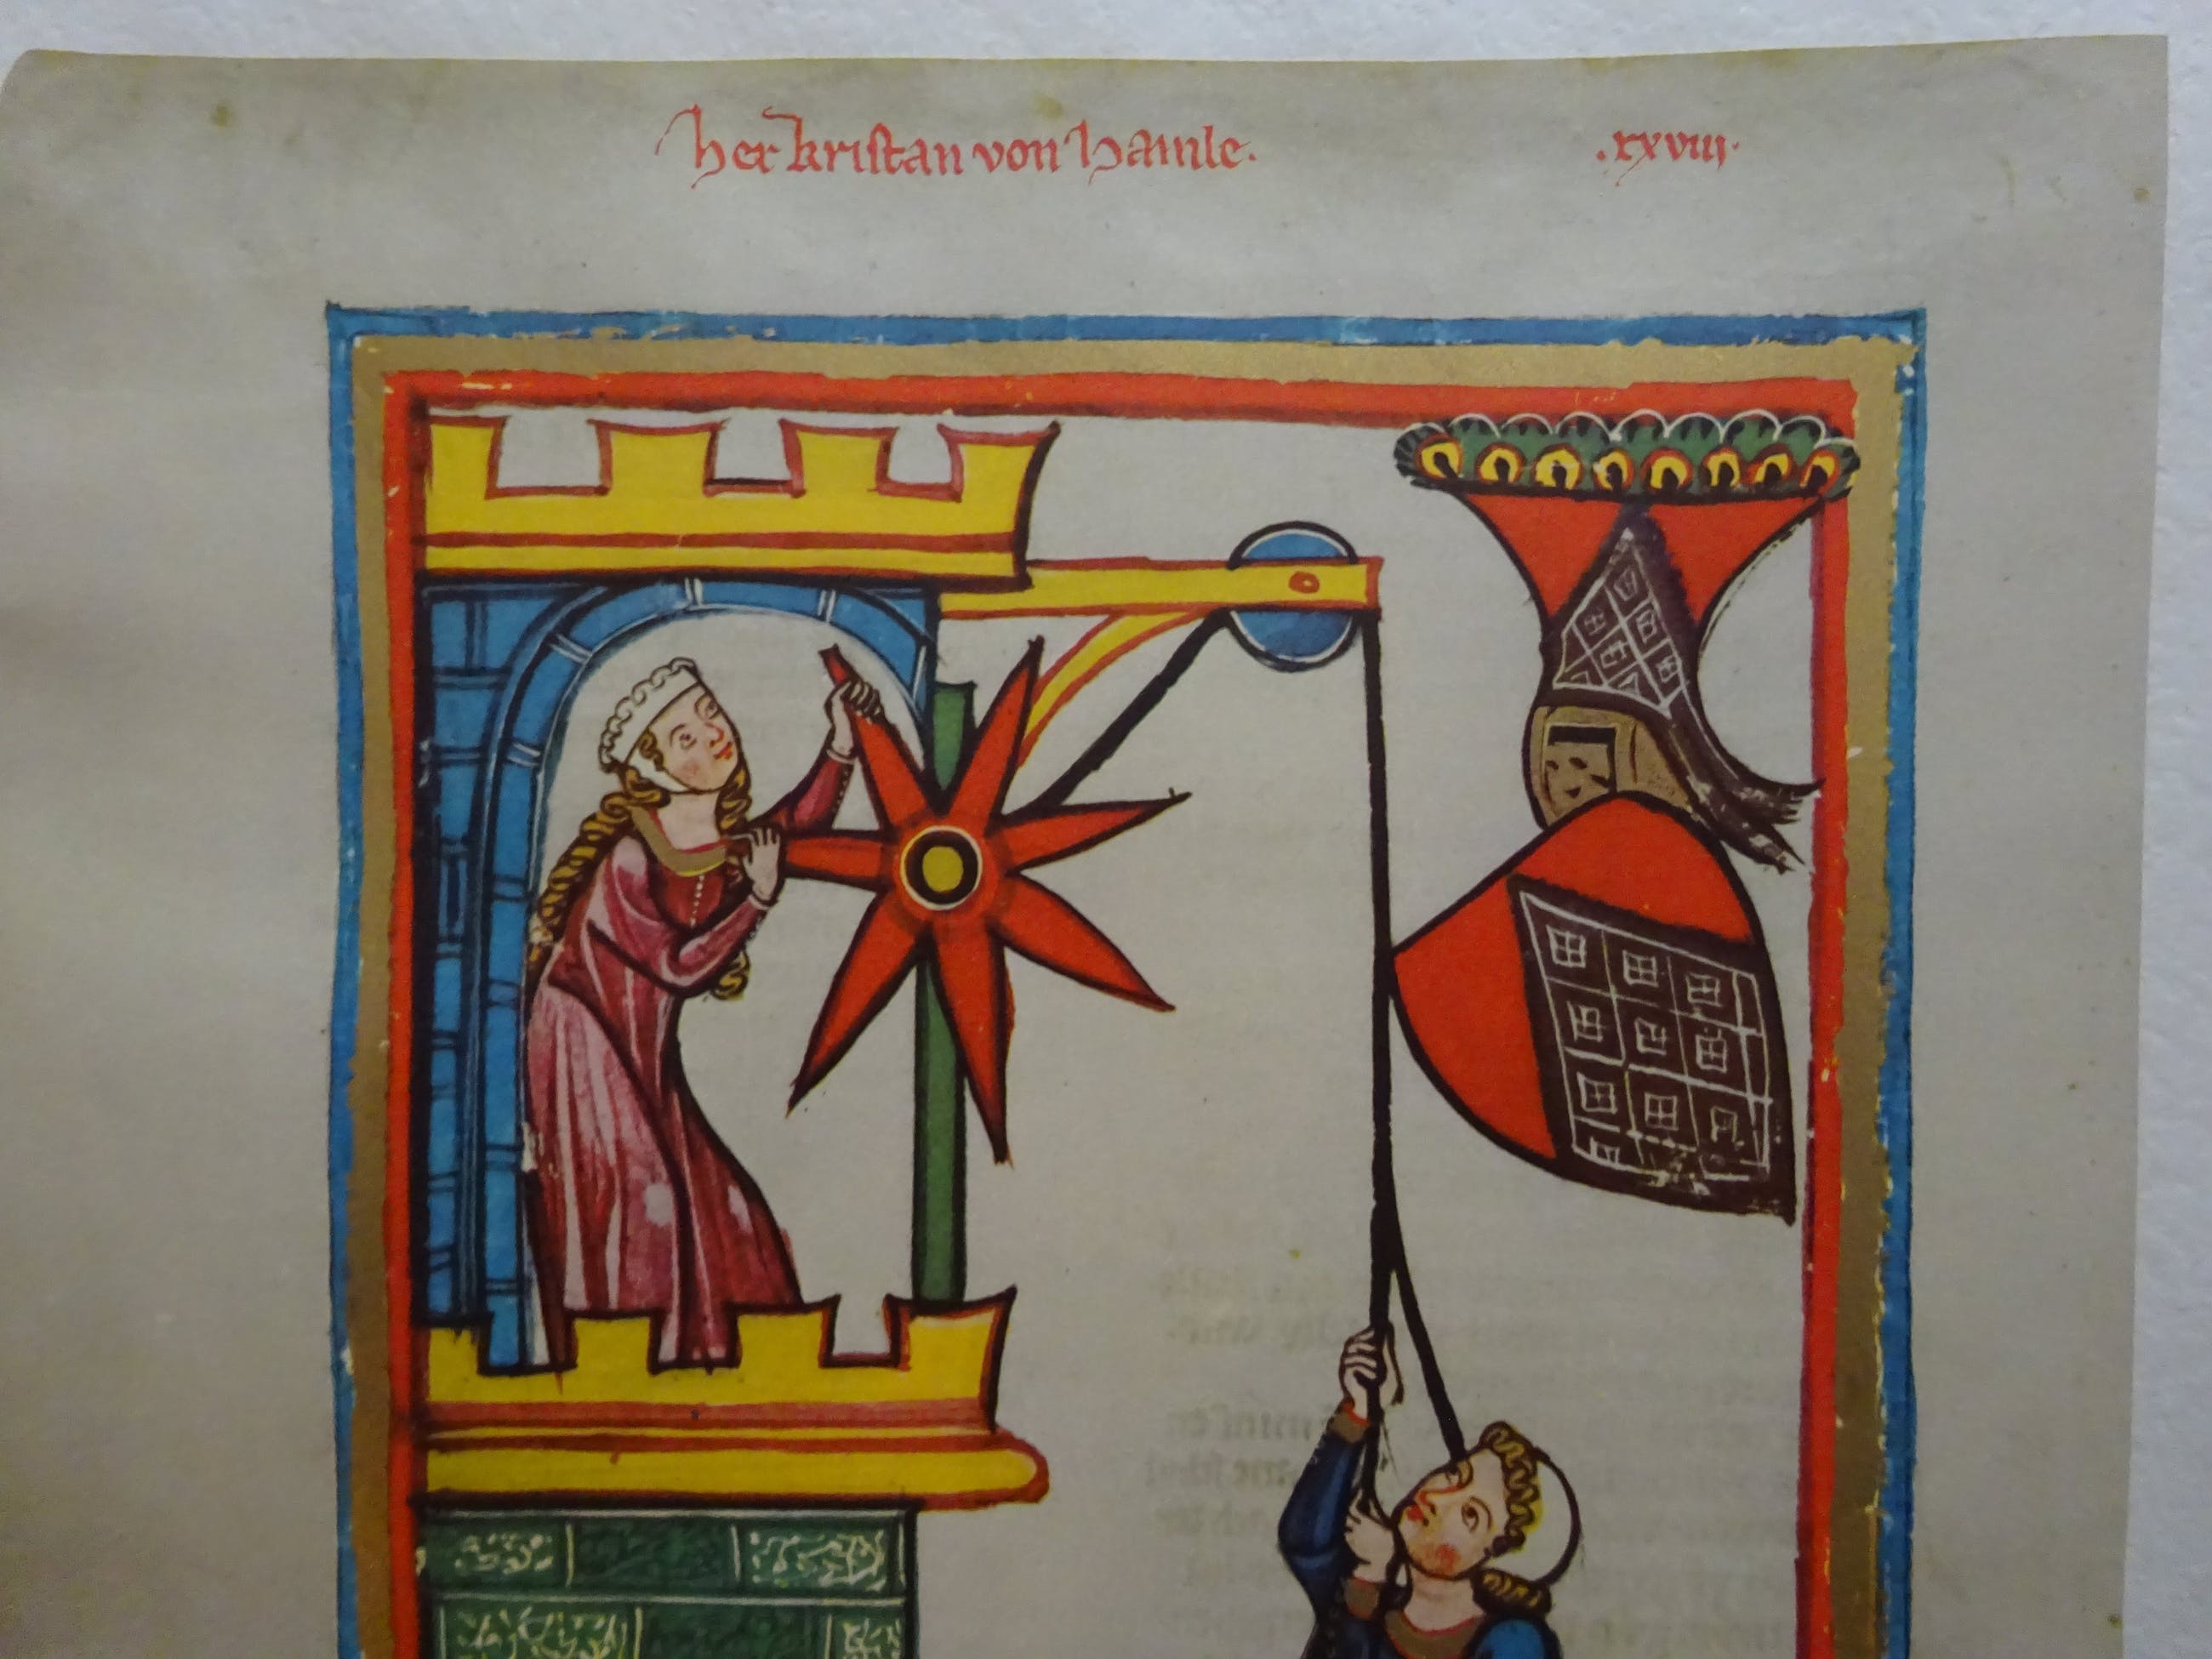 her kristan von hamle.
.xxviii.